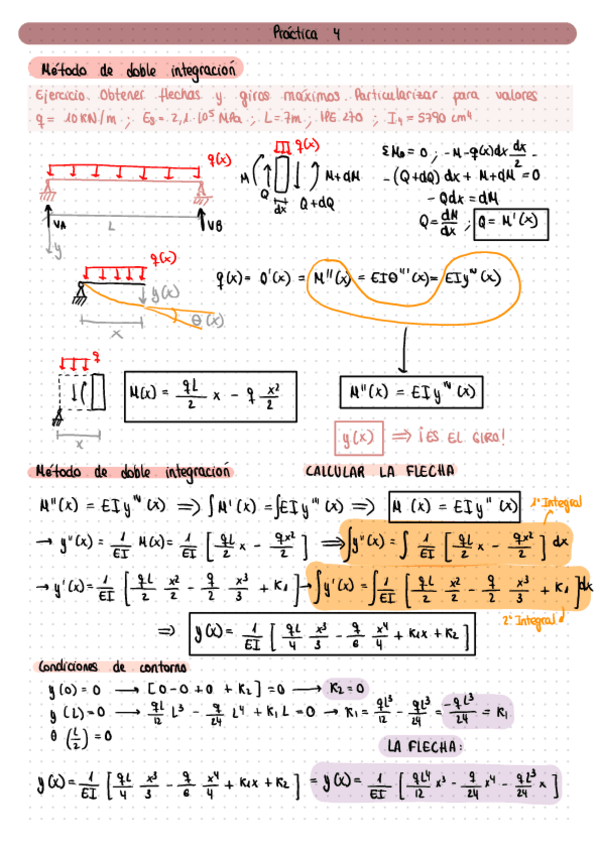 Práctica 4
Método de doble integración
Ejercicio. Obtener flechas y giros máximos. Particularizar para valores
q = 10KN/m ; Eg = 2,1·10⁵ MPa ; L = 7m ; IPE 270 ; I₄ = 5790 cm⁴
q(x)
VA
L
VB
y
q(x)
M
Q
dx
Q+dQ
M+dM
ΣM₀ = 0 ; -M-q(x)dx dx/2 -
-(Q+dQ) dx + M+dM = 0
- Qdx = dM
Q = dM/dx ; Q = M'(x)
q(x)
y(x)
θ(x)
x
q(x) = Q'(x) = M''(x) = EIθ'''(x) = EIy^IV(x)
q
x
M(x) = qL/2 x - q x²/2
M''(x) = EIy^IV(x)
y(x) ⇒ ¡ES EL GIRO!
Método de doble integración
CALCULAR LA FLECHA
M''(x) = EIy^IV(x) ⇒ ∫M'(x) = ∫EIy'''(x) ⇒ M(x) = EIy''(x)
1ª Integral
→ y''(x) = 1/EI M(x) = 1/EI [qL/2 x - qx²/2] ⇒ ∫y''(x) = ∫ 1/EI [qL/2 x - qx²/2] dx
→ y'(x) = 1/EI [qL/2 x²/2 - q/2 x³/3 + K₁] → ∫y'(x) = ∫ 1/EI [qL/2 x²/2 - q/2 x³/3 + K₁] dx
2ª Integral
⇒ y(x) = 1/EI [qL/4 x³/3 - q/6 x⁴/4 + K₁x + K₂]
Condiciones de contorno
y(0) = 0 → [0-0+0 + K₂] = 0 → K₂ = 0
y(L) = 0 → qL/12 L³ - q/24 L⁴ + K₁L = 0 → K₁ = qL³/12 - qL³/24 = -qL³/24 = K₁
θ(L/2) = 0
LA FLECHA:
y(x) = 1/EI [qL/4 x³/3 - q/6 x⁴/4 + K₁x + K₂] = y(x) = 1/EI [qL⁴/12 x³ - q/24 x⁴ - qL³/24 x]